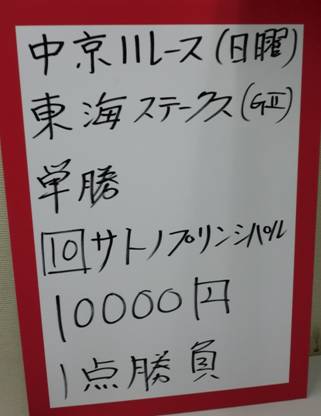 中京11レース(日曜)
東海ステークス(GⅡ)
単勝
10サトノプリンシパル
10000円
1点勝負